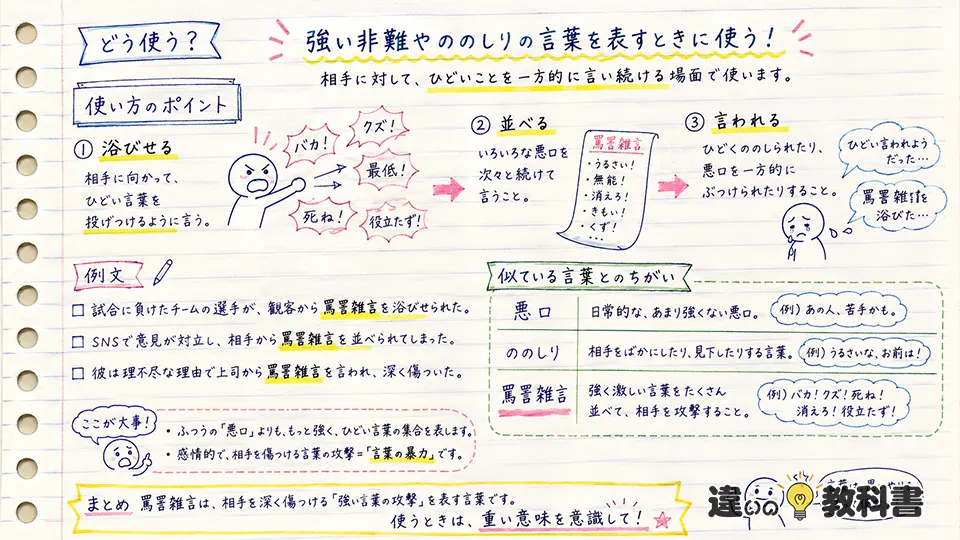 どう使う？
強い非難やののしりの言葉を表すときに使う！
相手に対して、ひどいことを一方的に言い続ける場面で使います。
使い方のポイント
① 浴びせる
相手に向かって、
ひどい言葉を
投げつけるように言う。
バカ！
クズ！
最低！
死ね！
役立たず！
② 並べる
いろいろな悪口を
次々と続けて
言うこと。
罵詈雑言
・うるさい！
・無能！
・消えろ！
・きもい！
・くず！
・…
③ 言われる
ひどくののしられたり、
悪口を一方的に
ぶつけられたりすること。
ひどい言われよう
だった…
罵詈雑言を
浴びた…
例文
□ 試合に負けたチームの選手が、観客から罵詈雑言を浴びせられた。
□ SNSで意見が対立し、相手から罵詈雑言を並べられてしまった。
□ 彼は理不尽な理由で上司から罵詈雑言を言われ、深く傷ついた。
似ている言葉とのちがい
悪口 日常的な、あまり強くない悪口。 例）あの人、苦手かも。
ののしり 相手をばかにしたり、見下したりする言葉。 例）うるさいな、お前は！
罵詈雑言 強く激しい言葉をたくさん
並べて、相手を攻撃すること。
例）バカ！クズ！死ね！
消えろ！役立たず！
ここが大事！
・ふつうの「悪口」よりも、もっと強く、ひどい言葉の集合を表します。
・感情的で、相手を傷つける言葉の攻撃＝「言葉の暴力」です。
まとめ 罵詈雑言は、相手を深く傷つける「強い言葉の攻撃」を表す言葉です。
使うときは、重い意味を意識して！
違いの教科書